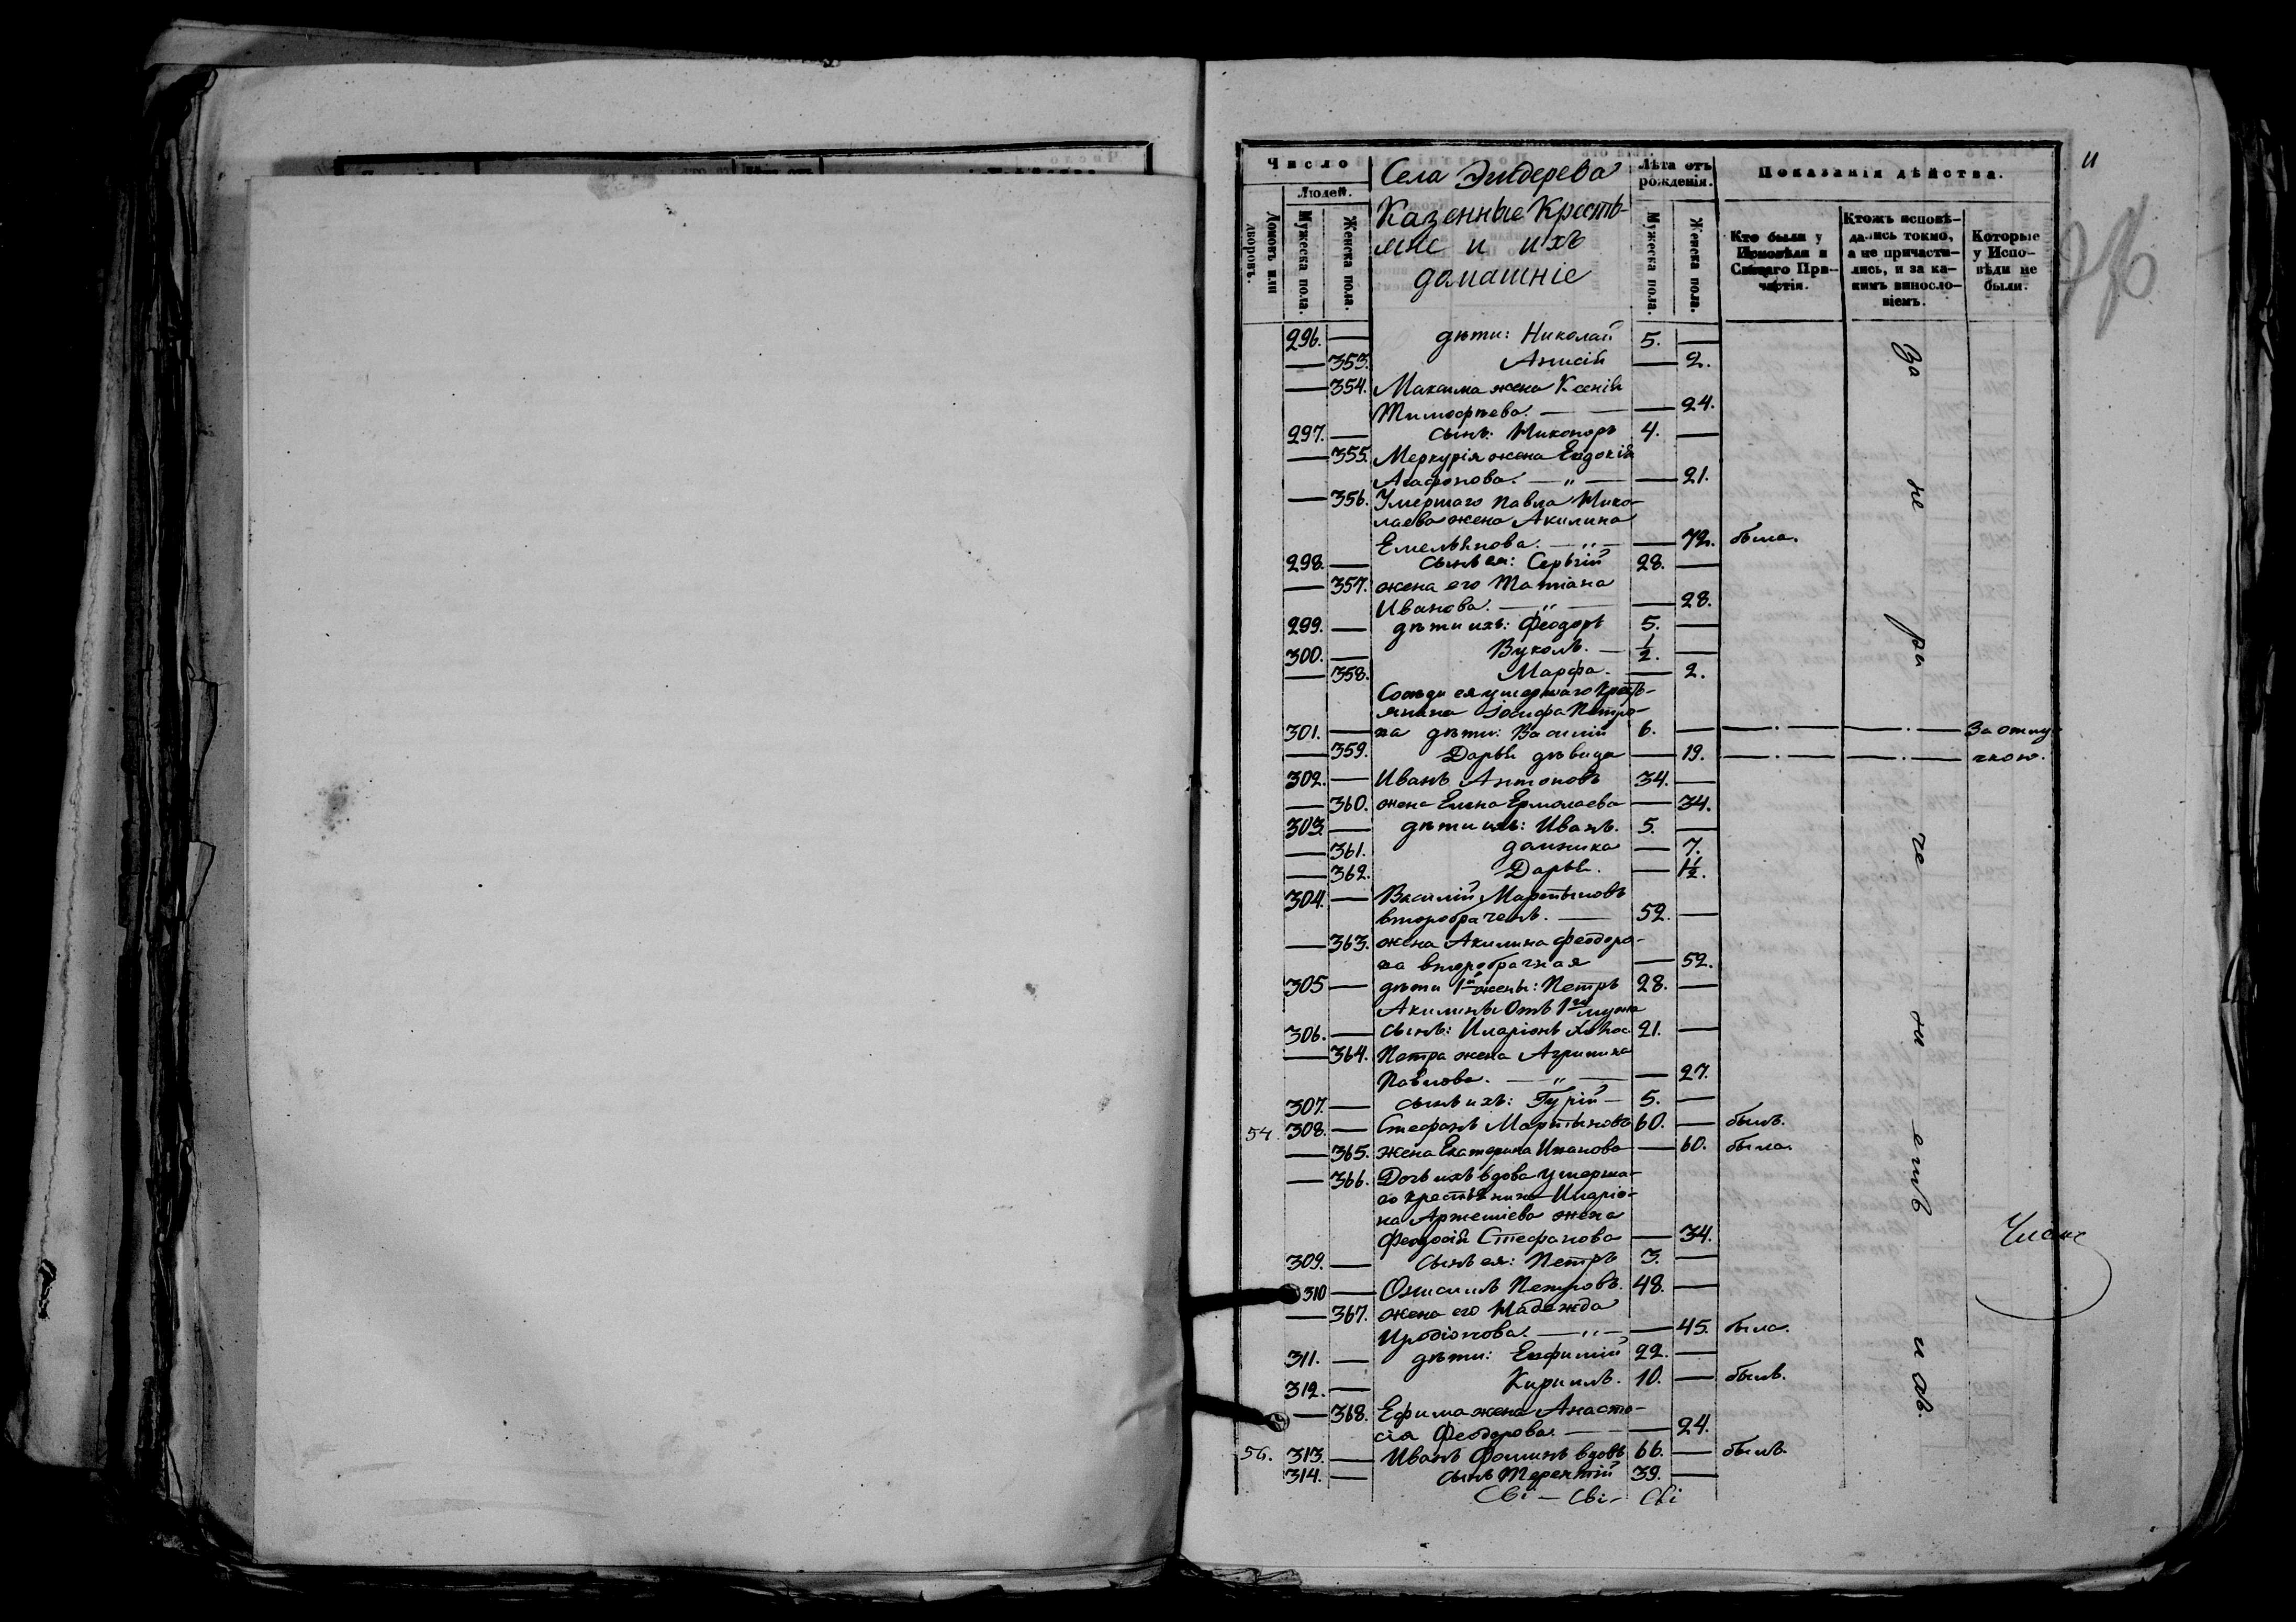 11
Число
Людей.
Домовъ или дворовъ.
Мужеска пола.
Женска пола.
Села
Казенные Крестья-
яне и ихъ
домашніе
Лѣта отъ рожденія.
Мужеска пола.
Женска пола.
Показанія дѣйства.
Кто были у Исповѣди и Святаго Причастія.
Ктожъ исповѣ-
дались токмо,
а не причасти-
лись, и за ка-
кимъ винosло-
віемъ.
Которые
у Испо-
вѣди не
были.
296. — дѣти: Николай 5. —
— 353. Анисія — 2.
— 354. Максима жена Ксенія
Тимофѣева. — — 24.
297. — сынъ: Никоноръ 4. —
— 355. Меркурія жена Евдокія
Агафонова. — " — — 21.
— 356. Умершаго Павла Нико-
лаева жена Акилина
Емельянова. — " — — 72. была.
298. — сынъ ея: Сергій 28. —
— 357. жена его Татіана
Иванова. — " — — 28.
299. — дѣти ихъ: Феодоръ 5. —
300. — Вуколъ. — 1/2. —
— 358. Марфа. — 2.
умершаго Крестья-
янина Іосифа Петро-
301. — ва дѣти: Василій 6. — — . — — . — За отлу-
— 359. Дарья дѣвица — 19. — . — — . — чкою.
302. — Иванъ Антоновъ 34. —
— 360. жена Елена Ермолаева — 34.
303. — дѣти ихъ: Иванъ. 5. —
— 361. Домника — 7.
— 362. Дарья. — 1 1/2.
304. — Василій Мартыновъ
второбраченъ. — 52. —
— 363. жена Акилина Феодоро-
ва второбрачная — 52.
305 — дѣти 1й жены: Петръ 28. —
Акилины отъ 1го мужа
306. — сынъ: Иларіонъ 21. —
— 364. Петра жена Агрипина
Павлова. — " — — 27.
307. — сынъ ихъ: Гурій — 5. —
54. 308. — Стефанъ Мартыновъ 60. — былъ.
— 365. жена Екатерина Иванова — 60. была.
— 366. Дочь ихъ вдова умерша-
го крестьянина Иларіо-
на Артемьева жена
Феодосія Стефанова — 34.
309. — сынъ ея: Петръ 3. —
310 — Онисимъ Петровъ. 48. —
— 367. жена его Надежда
Иродіонова. — " — — 45. была.
311. — дѣти: Евфимій 22. —
312. — Кириллъ. 10. — былъ.
— 368. Ефима жена Анаста-
сія Феодорова. — — 24.
313. — Иванъ Фоминъ вдовъ 66. — былъ.
314. — сынъ Терентій 39. —